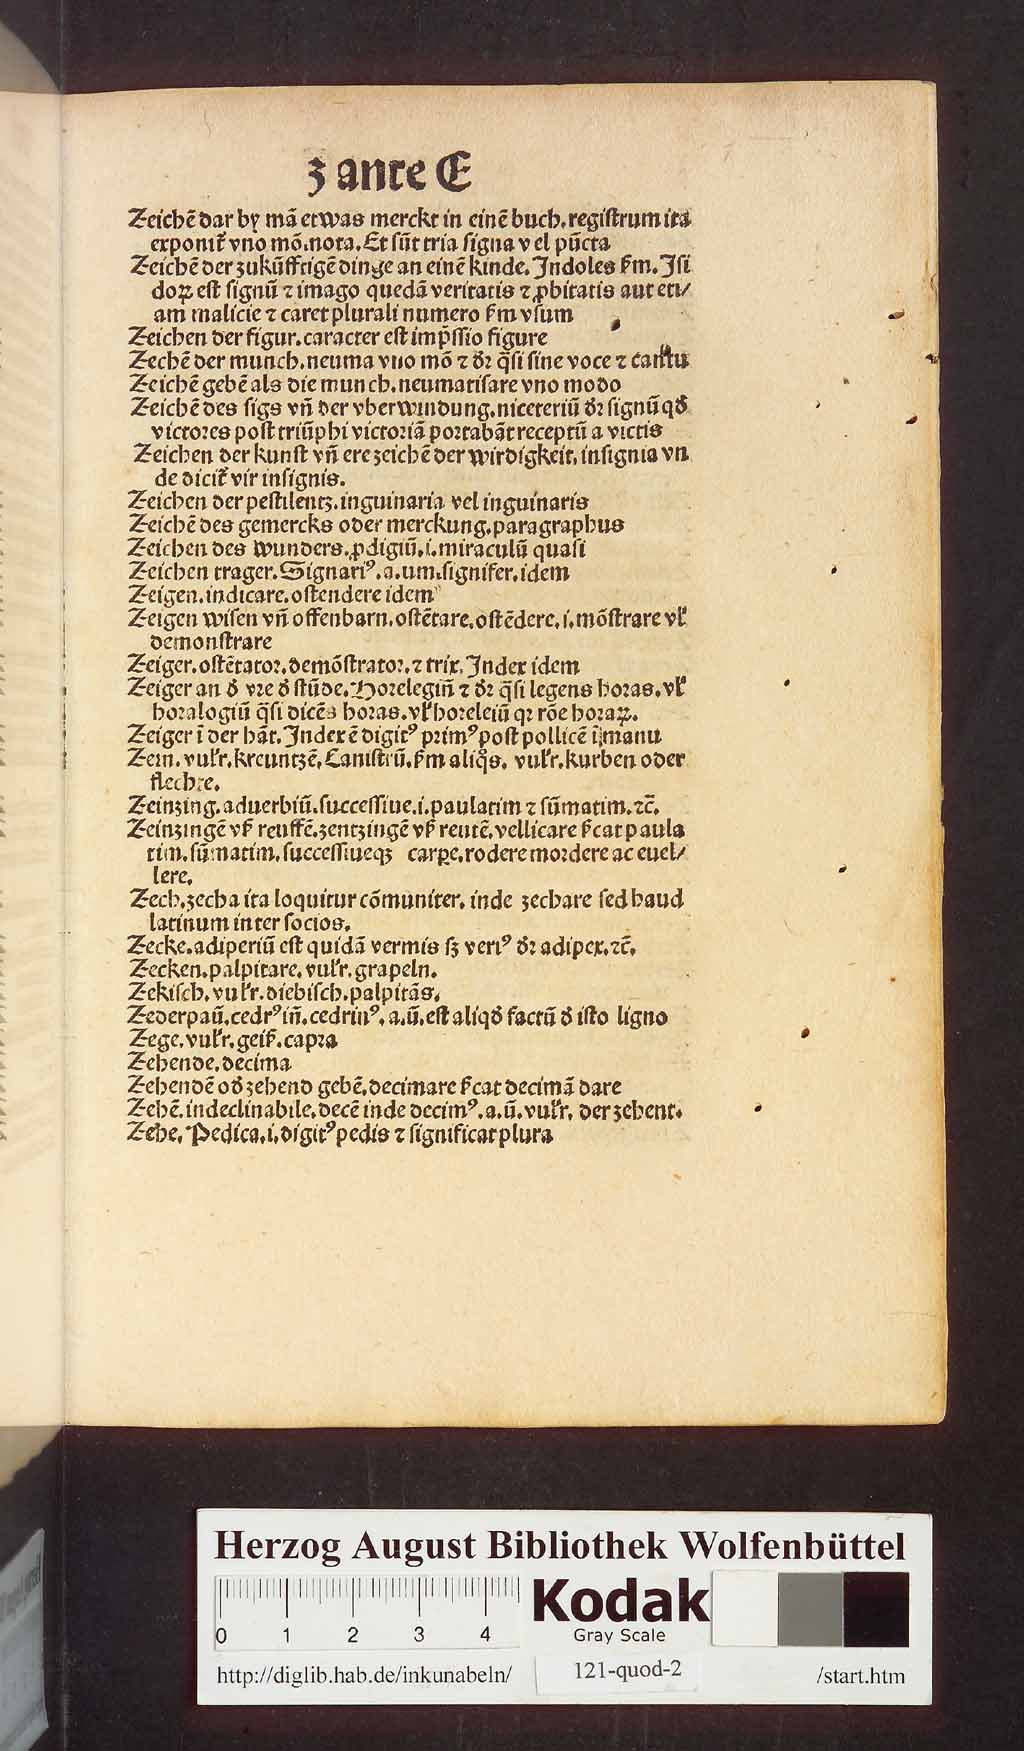 z ante E
Zeichē dar by mā etwas merckt in einē buch. registrum ita
exponit᷑ vno mō. nota. Et sūt tria signa vel pūcta
Zeichē der zukūfftigē dinge an einē kinde. Indoles ẜm. Isi
doꝝ est signū ⁊ imago quedā veritatis ⁊ ꝓbitatis aut eti/
am malicie ⁊ caret plurali numero ẜm vsum
Zeichen der figur. caracter est imp̄ssio figure
Zechē der munch. neuma vno mō ⁊ dꝛ q̄si sine voce ⁊ cantu
Zeichē gebē als die munch. neumatisare vno modo
Zeichē des sigs vn̄ der vberwindung. niceteriū dꝛ signū qđ
victoꝛes post triūphi victoꝛiā poꝛtabāt receptū a victis
Zeichen der kunst vn̄ ere zeichē der wirdigkeit. insignia vn
de dicit᷑ vir insignis.
Zeichen der pestilentz. inguinaria vel inguinaris
Zeichē des gemercks oder merckung. paragraphus
Zeichen des wunders. ꝓdigiū. i. miraculū quasi
Zeichen trager. Signariꝰ. a. um. signifer. idem
Zeigen. indicare. ostendere idem
Zeigen wisen vn̄ offenbarn. ostētare. ostēdere. i. mōstrare vł
demonstrare
Zeiger. ostētatoꝛ. demōstratoꝛ. ⁊ trix. Index idem
Zeiger an đ vre đ stūde. Horelegiū ⁊ dꝛ q̄si legens horas. vł
hoꝛalogiū q̄si dicēs hoꝛas. vł hoꝛeleiū qꝛ rōe hoꝛaꝝ.
Zeiger ī der hāt. Index ē digitꝰ pꝛimꝰ post pollicē ī manu
Zein. vulr̄. kreuntzē. Canistrū. ẜm aliq̊s. vulr̄. kurben oder
flechte.
Zeinzing. aduerbiū. successiue. i. paulatim ⁊ sūmatim. ⁊c̄.
Zeinzingē vß reuffē. zentzingē vß reutē. vellicare ẜcat paula
tim. sūmatim. successiueqꝫ carꝑe. rodere moꝛdere ac euel/
lere.
Zech. zecha ita loquitur cōmuniter. inde zechare sed haud
latinum inter socios.
Zecke. adiperiū est quidā vermis sꝫ veriꝰ dꝛ adipex. ⁊c̄.
Zecken. palpitare. vulr̄. grapeln.
Zekisch. vulr̄. diebisch. palpitās.
Zederpaū. cedrꝰ in̄. cedrinꝰ. a. ū. est aliqđ factū đ isto ligno
Zege. vulr̄. geiß. capꝛa
Zehende. decima
Zehendē ođ zehend gebē. decimare ẜcat decimā dare
Zehē. indeclinabile. decē inde decimꝰ. a. ū. vulr̄. der zehent.
Zehe. Pedica. i. digitꝰ pedis ⁊ significat plura
Herzog August Bibliothek Wolfenbüttel
0 1 2 3 4
Kodak
Gray Scale
http://diglib.hab.de/inkunabeln/ 121-quod-2 /start.htm